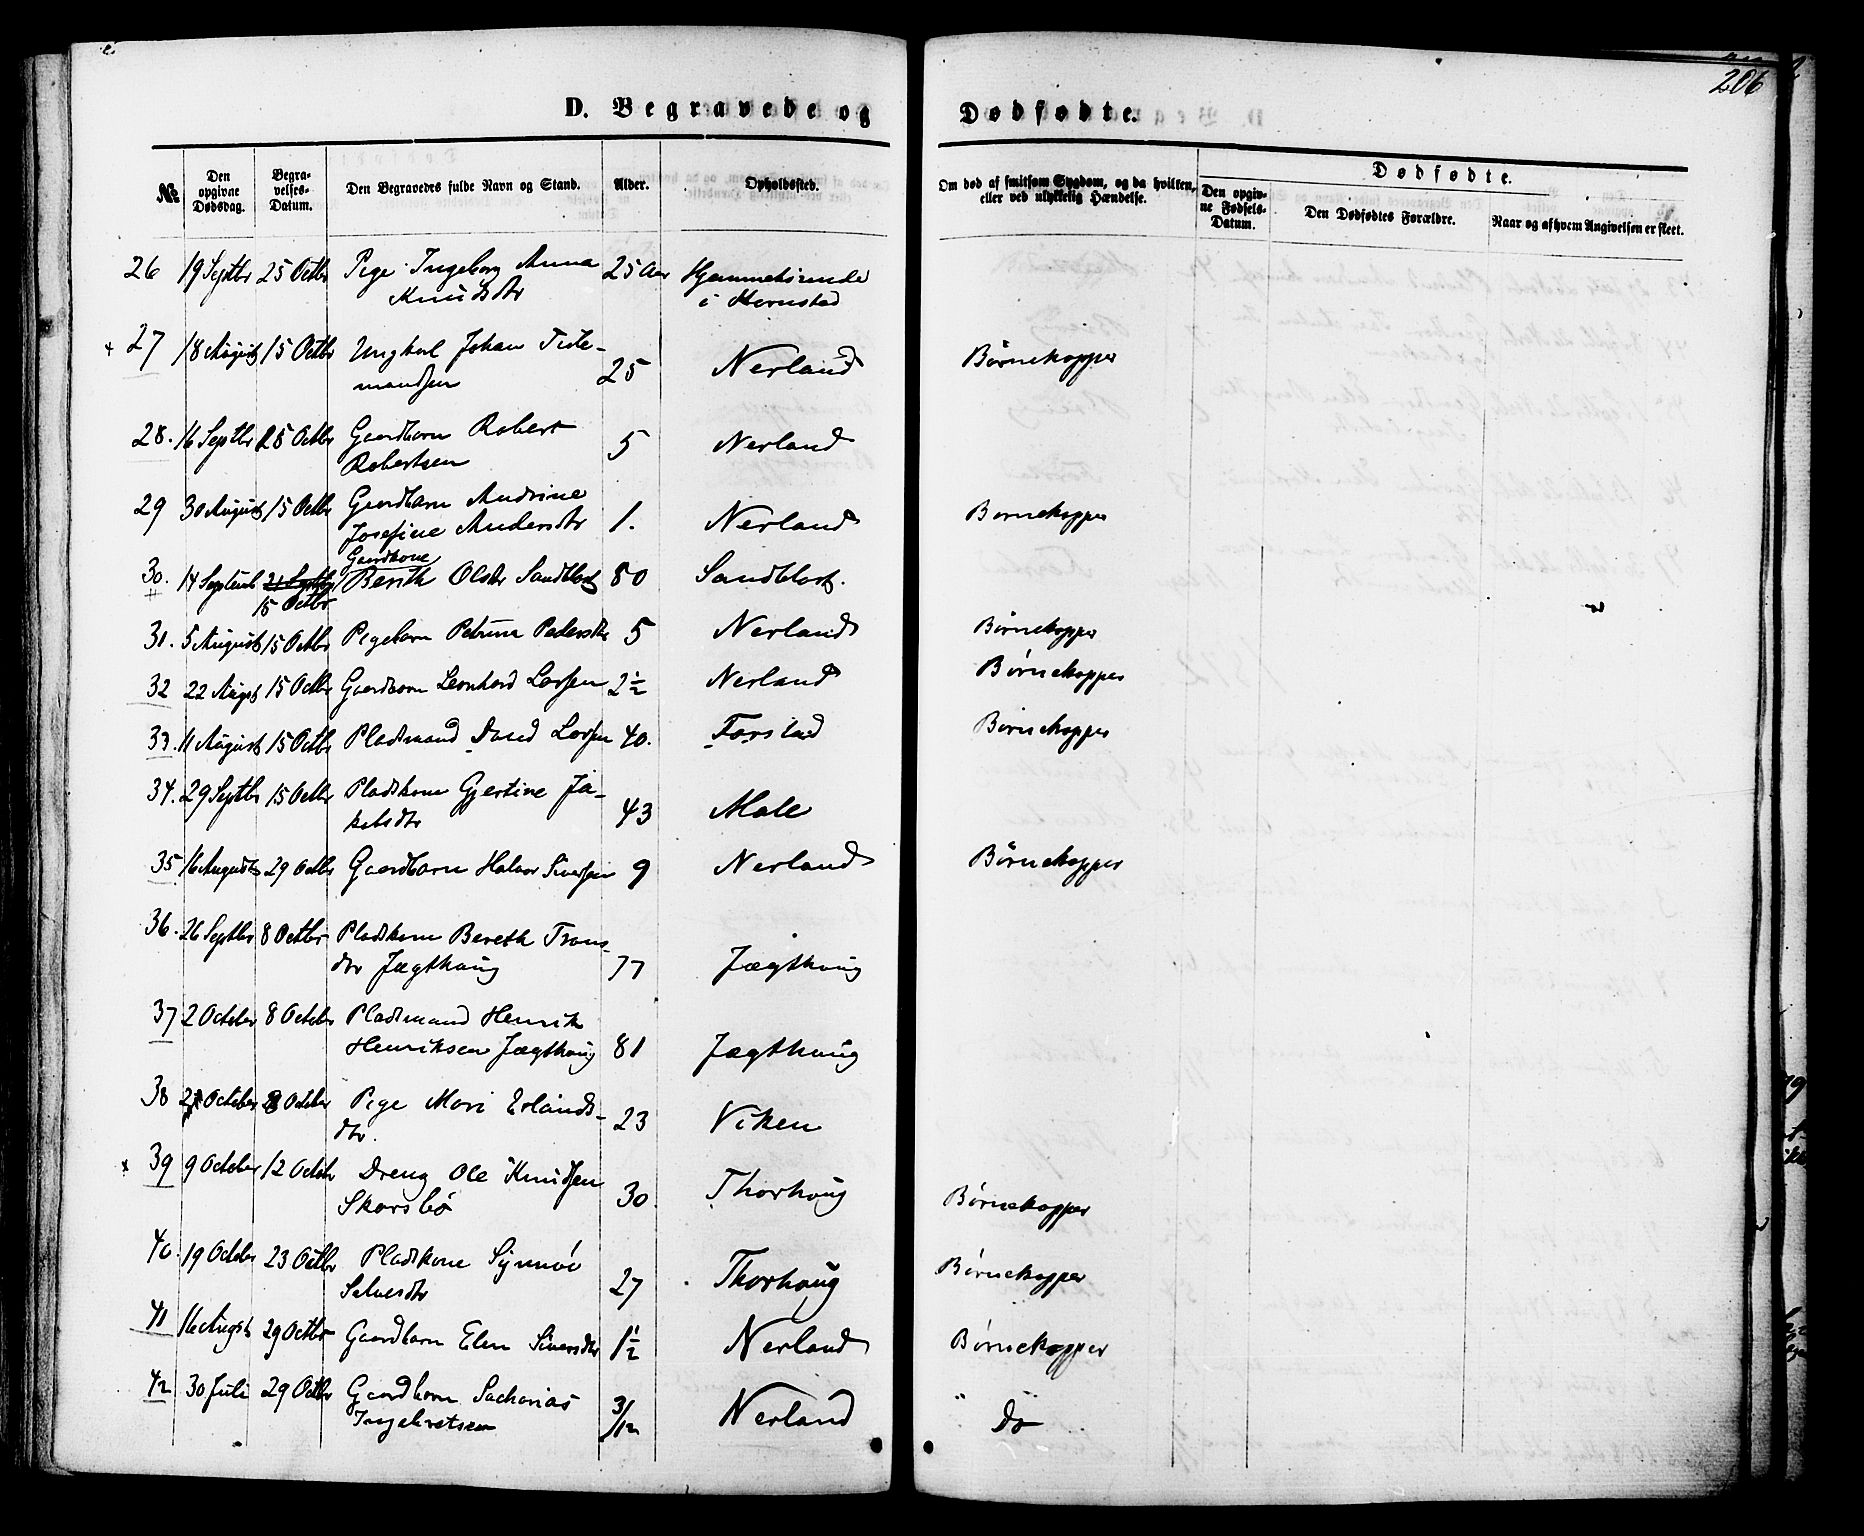 206
D. Begravede og Dødfødte.
№
Den opgivne Dødsdag.
Begravelses-Datum.
Den Begravedes fulde Navn og Stand.
Alder.
Opholdssted.
Om død af smitsom Sygdom, og da hvilken, eller ved ulykkelig Hændelse.
Dødfødte.
Den opgivne Fødsels-Datum.
Den Dødfødtes Forældre.
Naar og af hvem Angivelsen er skeet.
26 19 Septbr 25 Octbr Pige Ingeborg Anna 25 Aar
Knudsdtr i Hornstad
27 18 August 15 Octbr Ungkarl Johan Tide- Nerland Børnekopper
mandsen 25
28. 16 Septbr 25 Octbr Gaardbarn Robert 5 Nerland
Robertsen
29 30 August 15 Octbr Gaardbarn Andrine
Josefine Andersdtr 1. Nerland Børnekopper
Gaardkone
30. 14 Septemb 21 Septbr Berith Olsdtr Sandblost 80 Sandblost.
15 Octbr
31. 5 August 15 Octbr Pigebarn Petrine Pedersdtr 5 Nerland Børnekopper
32 22 Augst 15 Octbr Gaardbarn Leonhard Larsen 2½ Nerland Børnekopper
33. 11 August 15 Octbr Pladsmand David Larsen 40. Farstad Børnekopper
34. 29 Septbr 15 Octbr Pladskone Gjertine Ja-
kobsdtr 43 Male
35 16 Augusts 29 Octbr Gaardbarn Halvor Sivertsen 9 Nerland Børnekopper
36. 26 Septbr 8 Octbr Pladskone Bereth Trons-
dtr Jægthaug 77 Jægthaug
37 2 October 8 October Pladsmand Henrik
Henriksen Jægthaug 81 Jægthaug
38 2 October 8 October Pige Mari Erlands-
dtr. 23 Viken
39 9 October 12 Octobr Dreng Ole Knudsen
Skarsbø 30 Thorhaug Børnekopper
40. 19 October 23 Octbr Pladskone Synnøv
Salvesdtr 27 Thorhaug Børnekopper
41 16 Augst 29 Octbr Gaardbarn Elen Siversdtr 1½ Nerland Børnekopper
42 30 Juli 29 Octbr Gaardbarn Sacharias
Ingebretsen 3/12 Nerland " Do